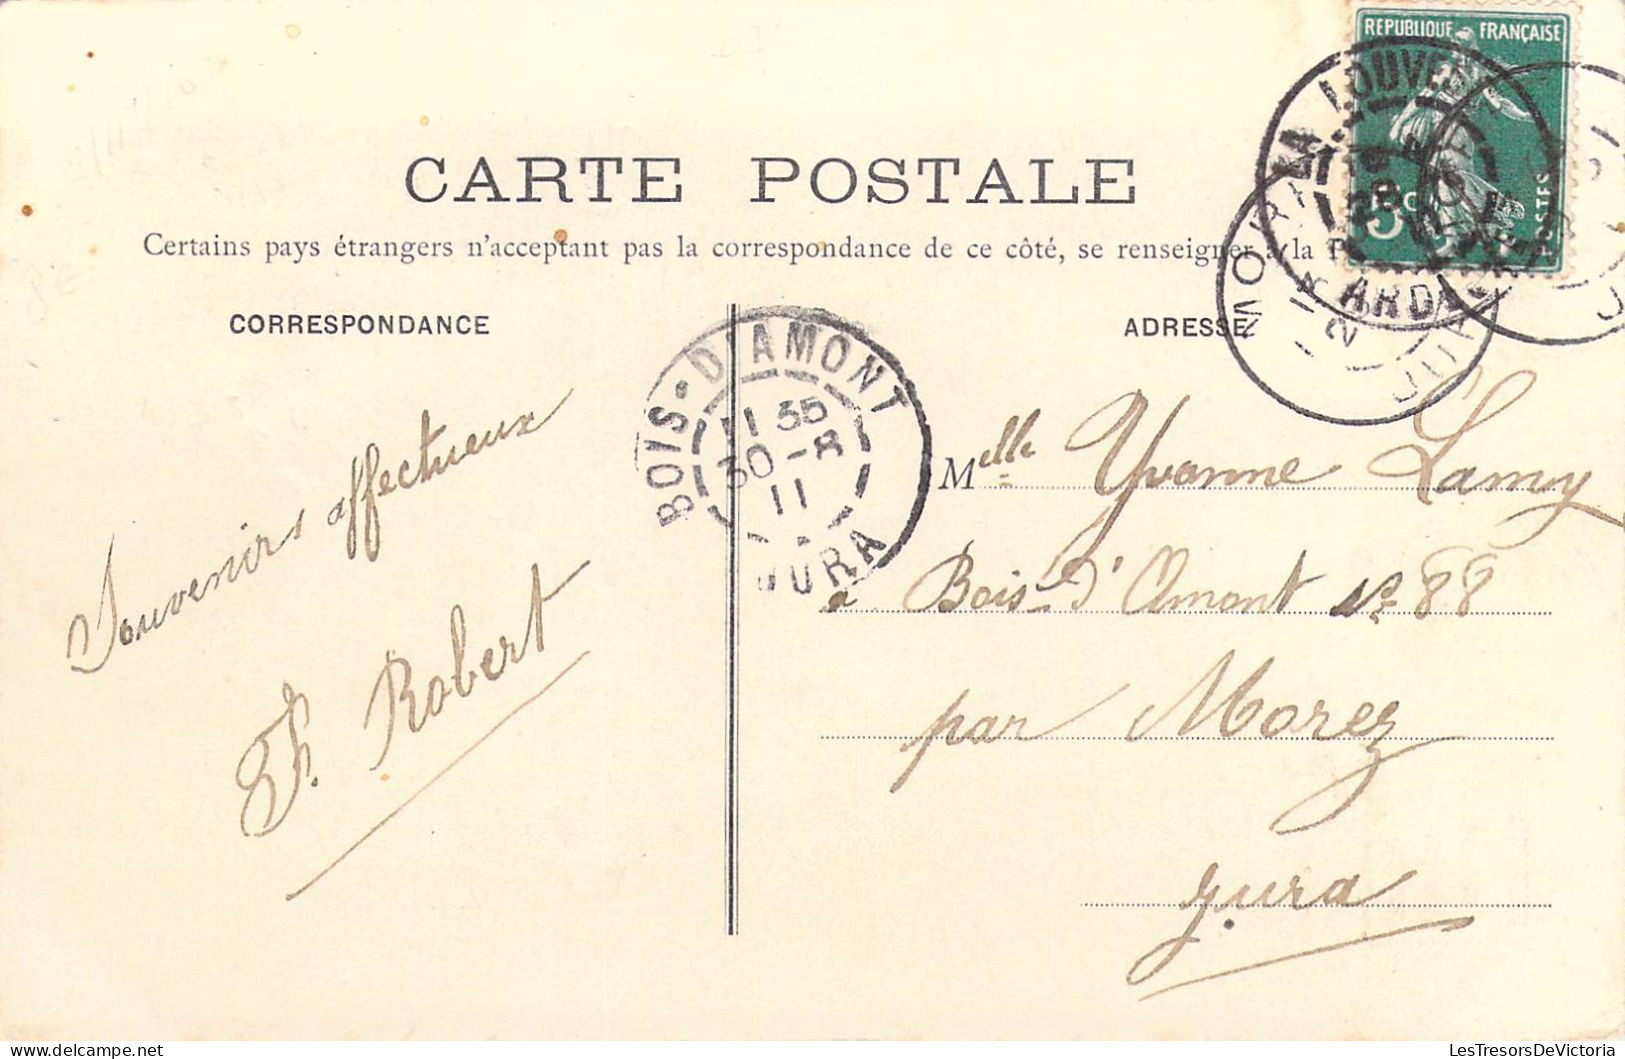 REPUBLIQUE FRANÇAISE
POSTES
CARTE POSTALE
Certains pays étrangers n'acceptant pas la correspondance de ce côté, se renseigner à la
CORRESPONDANCE
ADRESSE
LA LOUVESC
ARD
BOIS-D'AMONT
11 35
30-8
11
JURA
Souvenirs affectueux
Th. Robert
Melle Yvonne Lamy
à Bois-d'Amont No 88
par Morez
Jura
LesTresorsDeVictoria